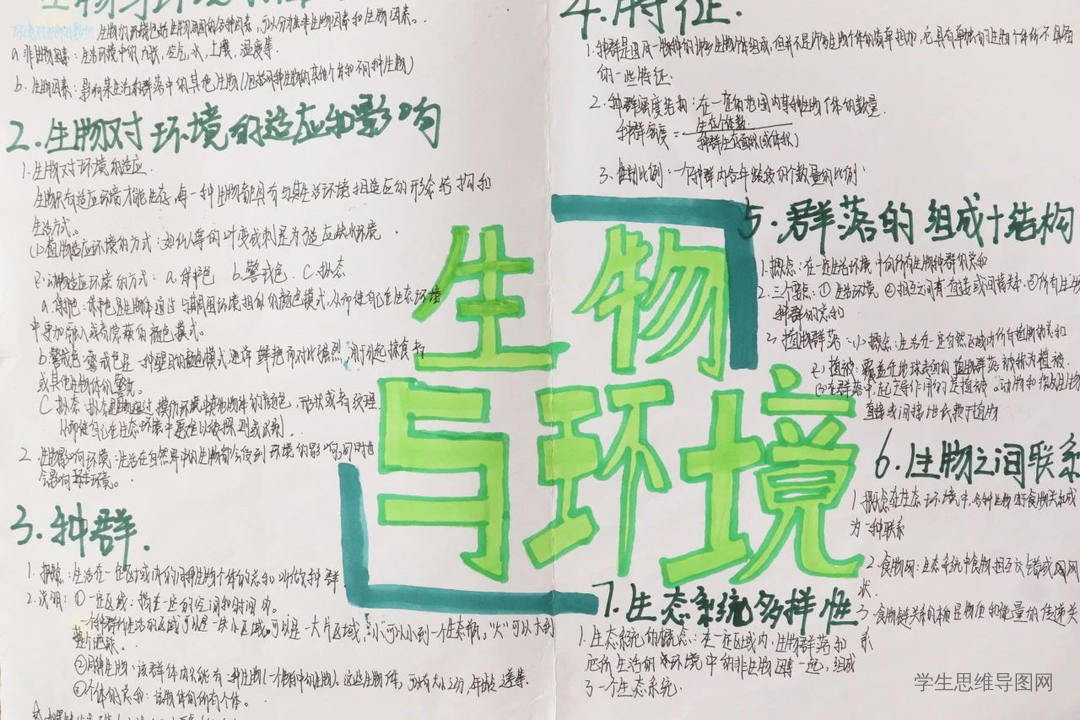 生物与环境
a.非生物因素：生活环境中的光照，空气，水，土壤，温度等
b.生物因素：影响某生物群落中的其他生物（包括同种生物的其他个体和不同种生物）
2.生物对环境的适应和影响
1.生物对环境的适应
生物只有适应环境才能生存，每一种生物都具有与其生活环境相适应的形态结构和
生活方式。
(1)植物适应环境的方式：如仙人掌的叶变成刺是为了适应缺水环境.
(2)动物适应环境的方式：a.保护色 b.警戒色 c.拟态
a.保护色：保护色是生物体通过与周围环境相似的颜色模式，从而使自己在生态环境
中更加融入或者隐蔽的颜色模式。
b.警戒色：警戒色是一种醒目的颜色模式通常鲜艳而对比强烈，用于引起捕食者
或其他生物体的警觉。
C.拟态：拟态是生物通过模仿环境或其他物体的颜色，形状或者纹理.
从而使自己在生态环境中更难以被察觉或识别.
2.生物影响环境：生活在自然界中的生物都会受到环境的影响，同时也
会影响着环境。
3.种群.
1.概念：生活在一定区域内的同种生物个体的总和叫做种群
2.说明：①一定区域：指在一定的空间和时间内.
一种群所生活的区域可以是一块小区域，可以是一大片区域，"小"可以小到一个生态瓶，"大"可以大到
整个地球.
②同种生物：该群体内只能有一种生物
③个体的总和：该物种的所有个体。
4.特征.
1.种群是由同一物种的许多生物个体组成，但并不是所有生物个体的简单相加，它具有单独的生物个体所不具备
的一些特征.
2.种群密度结构：在一定的范围内某种生物个体的数量.
种群密度=
生态个体数
种群生态面积(或体积)
3.性别比例：一个种群内各年龄段的个数量的比例
5.群落的组成十结构
1.概念：在一定生活环境中的所有生物种群的总和
2.三个要点：①生活环境 ②相互之间有直接或间接关系 ③所有生物
种群的总和
3.植物群落：(1)概念：生活在一定自然区域内所有植物的总和
(2)植被：覆盖在地球表面的植物群落被称为植被.
(3)在群落中，起主导作用的是植被，动物和微生物
直接或间接地依赖于植物
6.生物之间联系
1.概念：在生态环境中，各种生物由于食物关系成
为一种联系
2.食物网：生态系统中食物相互交错成网网
状.
3.食物链关系的本质是物质和能量的传递关
系
7.生态系统多样性
1.生态系统的概念：在一定区域内，生物群落和
它所生活的环境中的非生物因素一起，组成
了一个生态系统.
生物
与环境
学生思维导图网